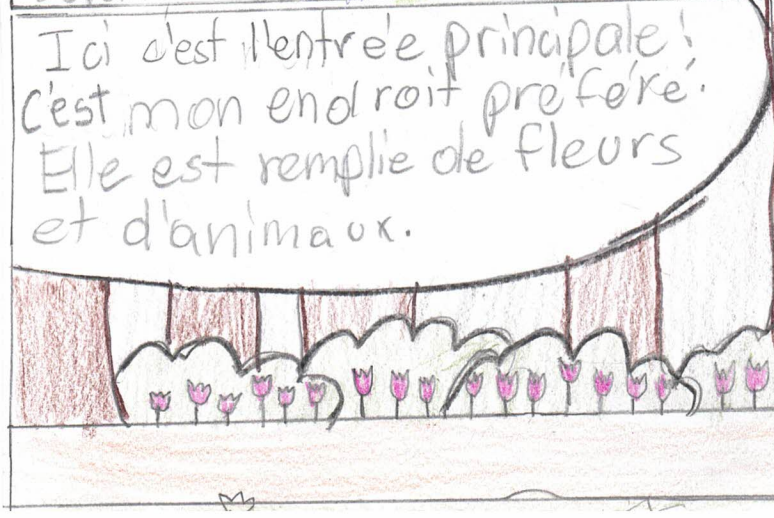 Ici c'est l'entrée principale!
C'est mon endroit préféré.
Elle est remplie de fleurs
et d'animaux.